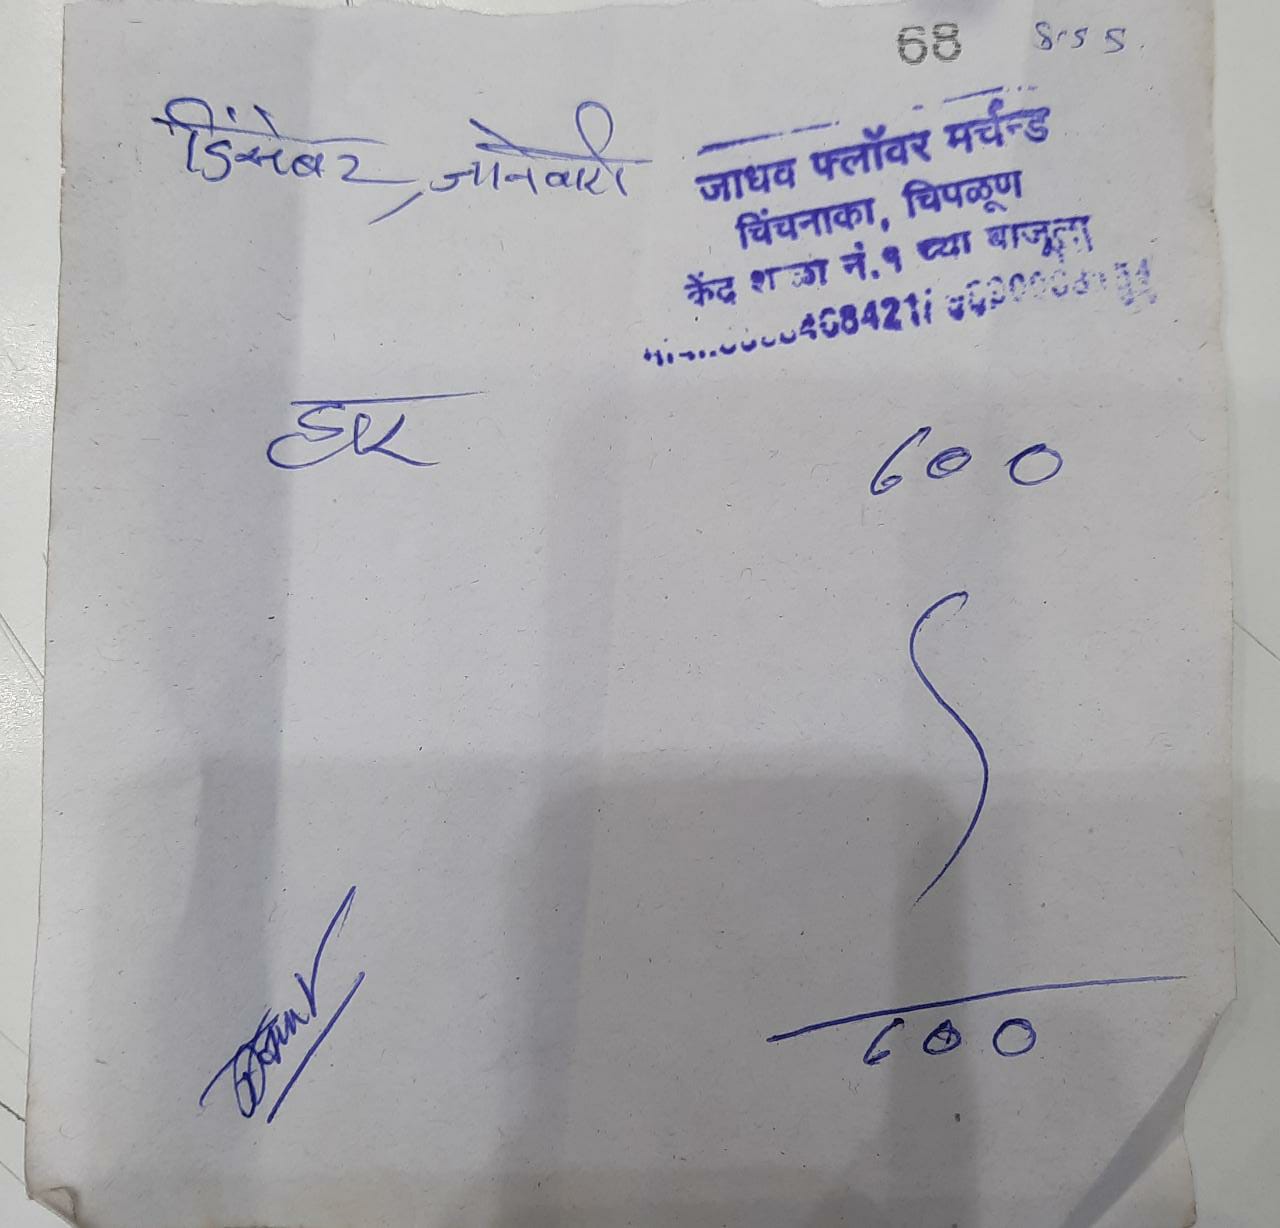 68
डिसेंबर, जानेवारी
जाधव फ्लॉवर मर्चन्ड
चिंचनाका, चिपळूण
केंद्र शाळा नं.१ च्या बाजूला
हार 600
600